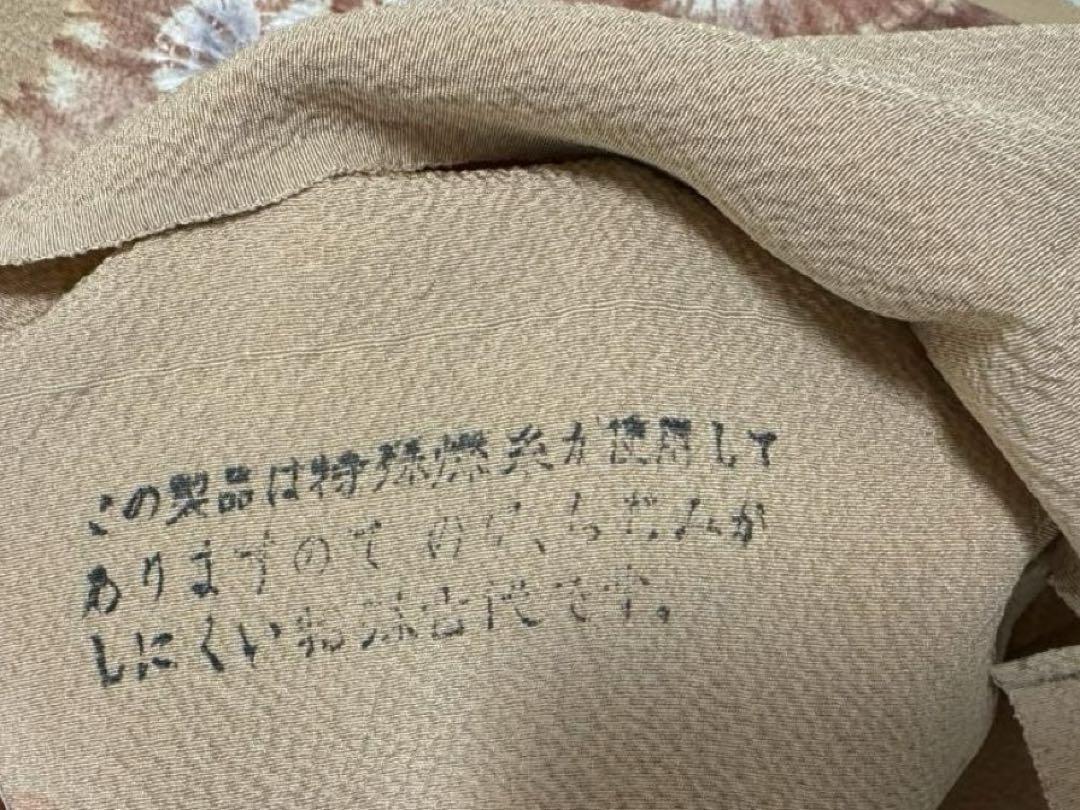 この製品は特殊撚糸が使用して
ありますので のび、ちぢみが
しにくい特殊古代です。